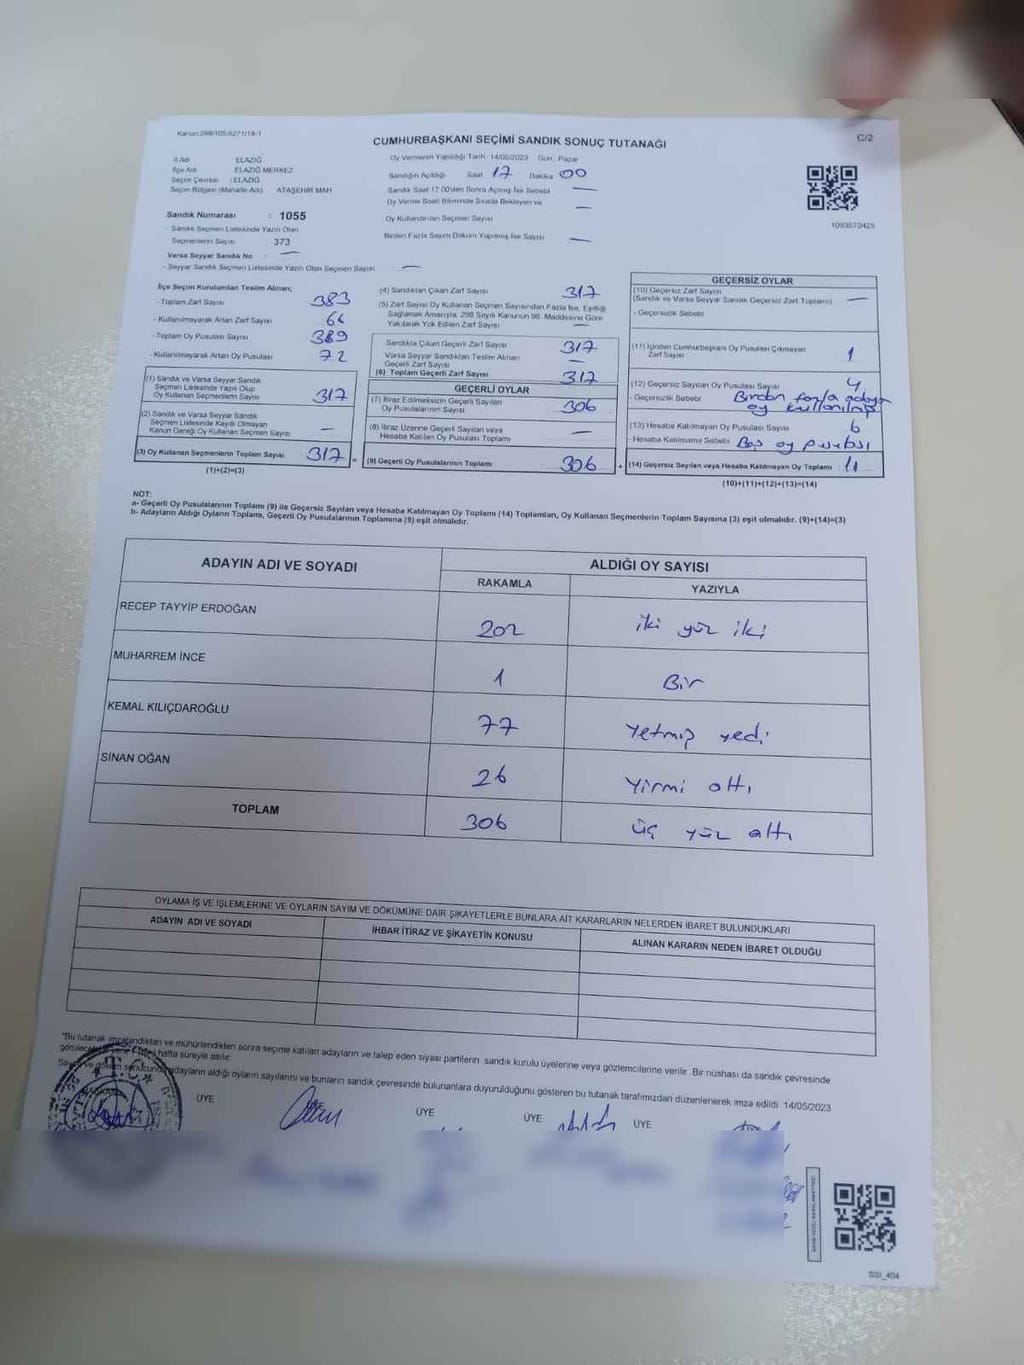 Kanun:298/105;6271/18-1
C/2
CUMHURBAŞKANI SEÇİMİ SANDIK SONUÇ TUTANAĞI
İl Adı : ELAZIĞ
İlçe Adı : ELAZIĞ MERKEZ
Seçim Çevresi : ELAZIĞ
Seçim Bölgesi (Mahalle Adı) : ATAŞEHİR MAH.
Oy Vermenin Yapıldığı Tarih 14/05/2023 Gün Pazar
Sandığın Açıldığı Saat 17 Dakika 00
Sandık Saat 17.00'den Sonra Açılmış İse Sebebi —
Oy Verme Saati Bitiminde Sırada Bekleyen ve
Oy Kullandırılan Seçmen Sayısı —
Birden Fazla Sayım Döküm Yapılmış İse Sayısı —
1093570425
Sandık Numarası : 1055
- Sandık Seçmen Listesinde Yazılı Olan
Seçmenlerin Sayısı : 373
Varsa Seyyar Sandık No : —
- Seyyar Sandık Seçmen Listesinde Yazılı Olan Seçmen Sayısı : —
İlçe Seçim Kurulundan Teslim Alınan;
- Toplam Zarf Sayısı 383
- Kullanılmayarak Artan Zarf Sayısı 66
- Toplam Oy Pusulası Sayısı 389
- Kullanılmayarak Artan Oy Pusulası 72
(1) Sandık ve Varsa Seyyar Sandık
Seçmen Listesinde Yazılı Olup
Oy Kullanan Seçmenlerin Sayısı 317
(2) Sandık ve Varsa Seyyar Sandık
Seçmen Listesinde Kaydı Olmayan
Kanun Gereği Oy Kullanan Seçmen Sayısı —
(3) Oy Kullanan Seçmenlerin Toplam Sayısı 317
(1)+(2)=(3)
(4) Sandıktan Çıkan Zarf Sayısı 317
(5) Zarf Sayısı Oy Kullanan Seçmen Sayısından Fazla İse, Eşitliği
Sağlamak Amacıyla, 298 Sayılı Kanunun 98. Maddesine Göre
Yakılarak Yok Edilen Zarf Sayısı —
Sandıkta Çıkan Geçerli Zarf Sayısı 317
Varsa Seyyar Sandıktan Teslim Alınan
Geçerli Zarf Sayısı —
(6) Toplam Geçerli Zarf Sayısı 317
GEÇERLİ OYLAR
(7) İtiraz Edilmeksizin Geçerli Sayılan
Oy Pusulalarının Sayısı 306
(8) İtiraz Üzerine Geçerli Sayılan veya
Hesaba Katılan Oy Pusulası Toplamı —
= (9) Geçerli Oy Pusulalarının Toplamı 306
GEÇERSİZ OYLAR
(10) Geçersiz Zarf Sayısı
(Sandık ve Varsa Seyyar Sandık Geçersiz Zarf Toplamı) —
- Geçersizlik Sebebi
(11) İçinden Cumhurbaşkanı Oy Pusulası Çıkmayan
Zarf Sayısı 1
(12) Geçersiz Sayılan Oy Pusulası Sayısı 4
- Geçersizlik Sebebi Birden fazla adaya
oy kullanılmış
(13) Hesaba Katılmayan Oy Pusulası Sayısı 6
- Hesaba Katılmama Sebebi Boş oy pusulası
+ (14) Geçersiz Sayılan veya Hesaba Katılmayan Oy Toplamı 11
(10)+(11)+(12)+(13)=(14)
NOT:
a- Geçerli Oy Pusulalarının Toplamı (9) ile Geçersiz Sayılan veya Hesaba Katılmayan Oy Toplamı (14) Toplamları, Oy Kullanan Seçmenlerin Toplam Sayısına (3) eşit olmalıdır. (9)+(14)=(3)
b- Adayların Aldığı Oyların Toplamı, Geçerli Oy Pusulalarının Toplamına (9) eşit olmalıdır.
ADAYIN ADI VE SOYADI
ALDIĞI OY SAYISI
RAKAMLA YAZIYLA
RECEP TAYYİP ERDOĞAN 202 iki yüz iki
MUHARREM İNCE 1 Bir
KEMAL KILIÇDAROĞLU 77 Yetmiş yedi
SİNAN OĞAN 26 Yirmi altı
TOPLAM 306 üç yüz altı
OYLAMA İŞ VE İŞLEMLERİNE VE OYLARIN SAYIM VE DÖKÜMÜNE DAİR ŞİKAYETLERLE BUNLARA AİT KARARLARIN NELERDEN İBARET BULUNDUKLARI
ADAYIN ADI VE SOYADI İHBAR İTİRAZ VE ŞİKAYETİN KONUSU ALINAN KARARIN NEDEN İBARET OLDUĞU
*Bu tutanak imzalandıktan ve mühürlendikten sonra seçime katılan adayların ve talep eden siyasi partilerin sandık kurulu üyelerine veya gözlemcilerine verilir. Bir nüshası da sandık çevresinde
hafta süreyle asılır.
adayların aldığı oyların sayılarını ve bunların sandık çevresinde bulunanlara duyurulduğunu gösteren bu tutanak tarafımızdan düzenlenerek imza edildi. 14/05/2023
ÜYE ÜYE ÜYE ÜYE
SSI_404